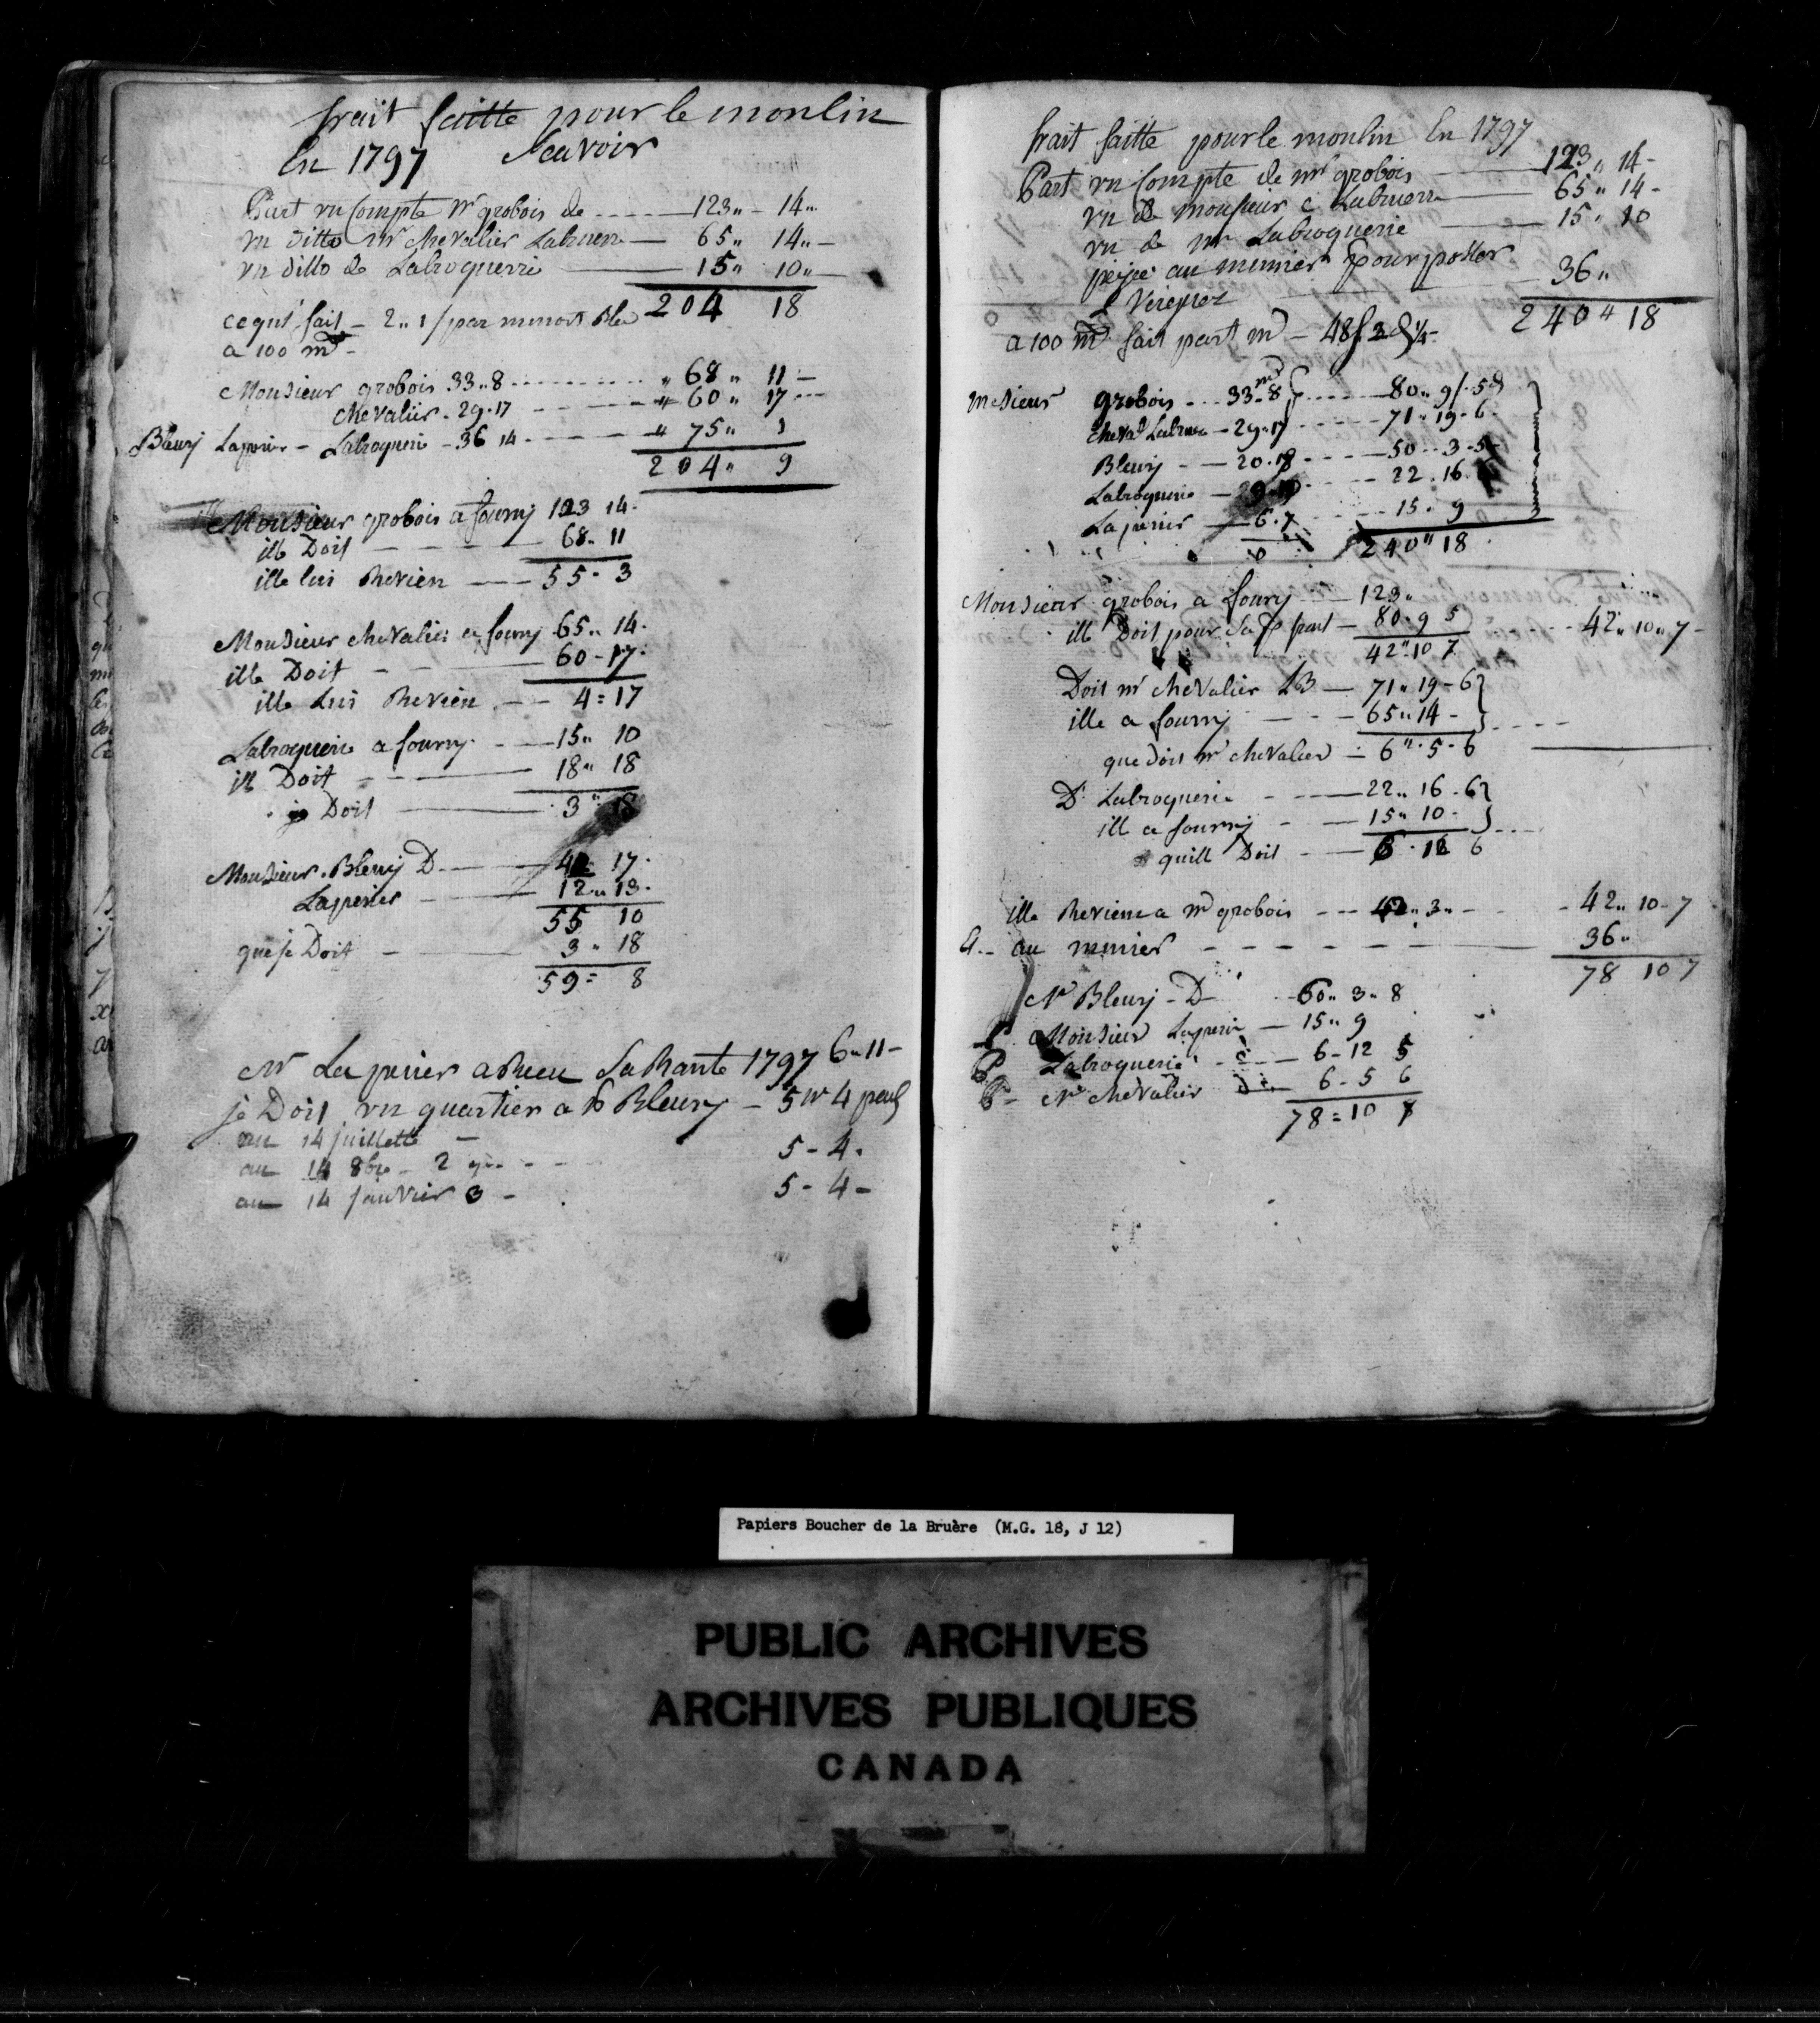 frait faitte pour le moulin
En 1797 Scavoir
Part un Compte Mr grobois de ------ 123" - 14"
un ditto Mr chevalier Labruere — 65" 14" —
un ditto de Labroquerri — 15" 10" —
204 18
ce qui fait - 2" 1/ par minost Bled
a 100 md -
Monsieur grobois 33"8 --------- " 68" 11 —
chevalier - 29-17 ------ " 60" 17 ---
Bleury Laperier - Labroquerie - 36 14 ------ " 75" 1
204" 9
Monsieur grobois a fourny 123 14-
ill Doit — 68" 11
ille lui Revien — 55 - 3
Monsieur chevalier a fourny 65" 14-
ille Doit — 60 - 17-
ille Lui Revien -- 4=17
Labroquerie a fourny - — 15" 10
ill Doit — 18" 18
je Doit — 3"
Monsieur Bleury D. — 42 17-
Laperier — 12" 13-
55 10
que je Doit — 3" 18
59= 8
Mr Laperier a Recu Sa Rante 1797 6"11 -
je Doit un quartier a Bleury - 5 4
au 14 juillette - 5 - 4.
au 14 8bre - 2
au 14 janvier 3 - 5 - 4 -
frait faitte pour le moulin En 1797
Part un Compte de mr grobois — 123" 14 -
un de monsieur c Labruere — 65" 14 -
un de mr Labroquerie — 15" 10
au munier pour
36"
240" 18
a 100 md fait part md - 48
mesieurs grobois --- 33md-8 ----- 80" 9/-5d
cheval Labruere - 29"17 ----- 71" 19-6-
Bleury - — 20-18 ---- 50 -- 3-5
Labroquerie — 22. 16.
Laperier — 6-7 --- 15" 9
240" 18
Monsieur grobois a fourny — 123"
ill Doit pour Sa part — 80-9 5 ----- 42" 10" 7 -
42"10 7
Doit mr chevalier LB — 71" 19 - 6
ille a fourny - - - 65"14 -
que doit mr chevalier - 6"-5-6
D. Labroquerie - — 22" 16 - 6
ill a fourny - — 15" 10 -
quill Doit - — 6 - 12 6
ille Revien a mr grobois --- 42" 3" - - 42" 10-7
a -- au munier - - - - - - — 36"
78 10 7
Mr Bleury - D - 50" 3" 8
Monsieur Laperier — 15" 9
Labroquerie — 6-12 5
Mr chevalier — 6 - 5 6
78=10 7
Papiers Boucher de la Bruère (M.G. 18, J 12)
PUBLIC ARCHIVES
ARCHIVES PUBLIQUES
CANADA